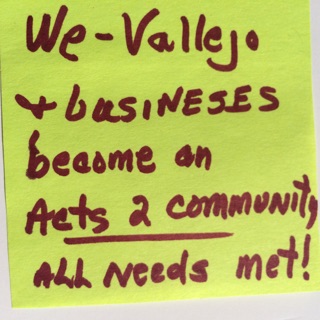 We-Vallejo
+ busINESES
become an
Acts 2 community,
ALL Needs met!